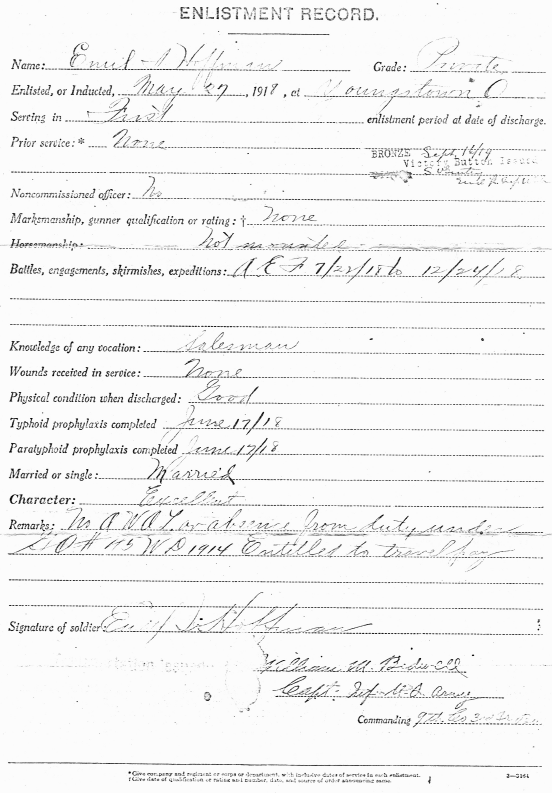 ENLISTMENT RECORD.
Name: Emil J Hoffman Grade: Private
Enlisted, or Inducted, May 27, 1918, at Youngstown O
Serving in First enlistment period at date of discharge.
Prior service:* None
BRONZE Sept 16/19
Victory Button Issued
Noncommissioned officer: No
Marksmanship, gunner qualification or rating: † None
Horsemanship: Not mounted
Battles, engagements, skirmishes, expeditions: A E F 7/22/18 to 12/24/18
Knowledge of any vocation: Salesman
Wounds received in service: None
Physical condition when discharged: Good
Typhoid prophylaxis completed June 17/18
Paratyphoid prophylaxis completed June 17/18
Married or single: Married
Character: Excellent
Remarks: No A W O L or absence from duty under
G O # 45 W D 1914 Entitled to travel pay
Signature of soldier: Emil J. Hoffman
William M. Bidwell
Capt. Inf. U.S. Army
Commanding
*Give company and regiment or corps or department, with inclusive dates of service in each enlistment.
†Give date of qualification or rating and number, date, and source of order announcing same.
3—3164